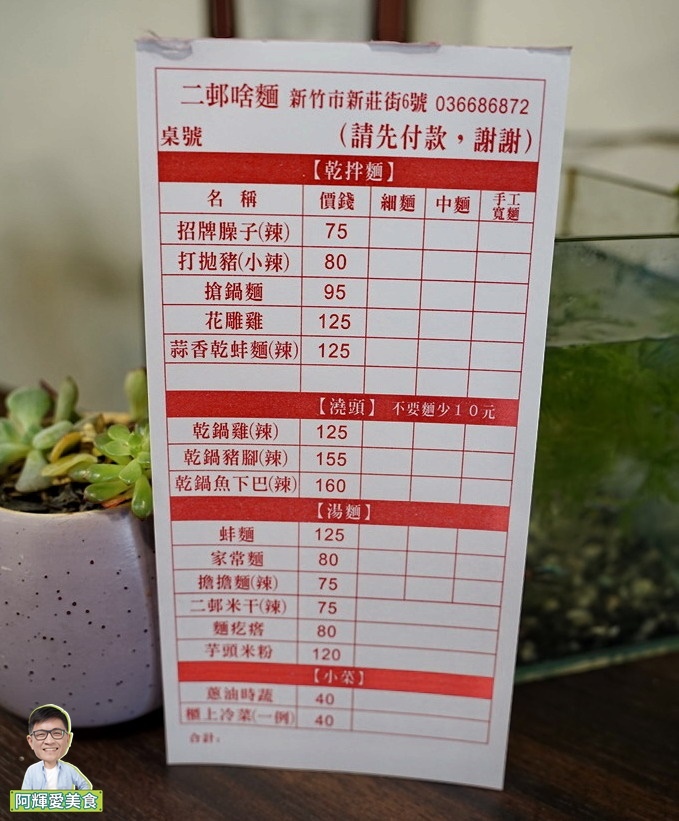 二邨啥麵 新竹市新莊街6號 036686872
桌號 (請先付款，謝謝)
【乾拌麵】
名 稱 價錢 細麵 中麵 手工寬麵
招牌臊子(辣) 75
打拋豬(小辣) 80
搶鍋麵 95
花雕雞 125
蒜香乾蚌麵(辣) 125
【澆頭】 不要麵少10元
乾鍋雞(辣) 125
乾鍋豬腳(辣) 155
乾鍋魚下巴(辣) 160
【湯麵】
蚌麵 125
家常麵 80
擔擔麵(辣) 75
二邨米干(辣) 75
麵疙瘩 80
芋頭米粉 120
【小菜】
蔥油時蔬 40
櫃上冷菜(一例) 40
合計:
阿輝愛美食